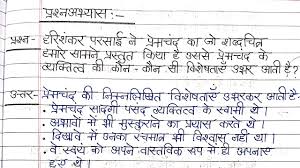 प्रश्नअभ्यास:—
प्रश्न- हरिशंकर परसाई ने प्रेमचंद का जो शब्दचित्र
हमारे सामने प्रस्तुत किया है उससे प्रेमचंद के
व्यक्तित्व की कौन-कौन सी विशेषताएँ उभर आती है?
उत्तर- प्रेमचंद की निम्नलिखित विशेषताएँ उभरकर आती है-
. प्रेमचंद सादगी पसंद व्यक्तित्व के स्वामी थे।
. अभावों में भी मुस्कुराने का प्रयास करते थे
. दिखावे में उनका रंचमात्र भी विश्वास नहीं था।
. वे स्वयं को अपने वास्तविक रूप में ही अपनाए
हुए थे।